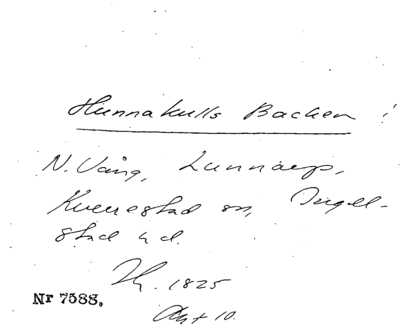 Hunnakulls Backen !
N. Vång, Lunnarp,
Kverrestad sn, Ingel-
stad hd.
1825
Akt 10.
Nr 7588.